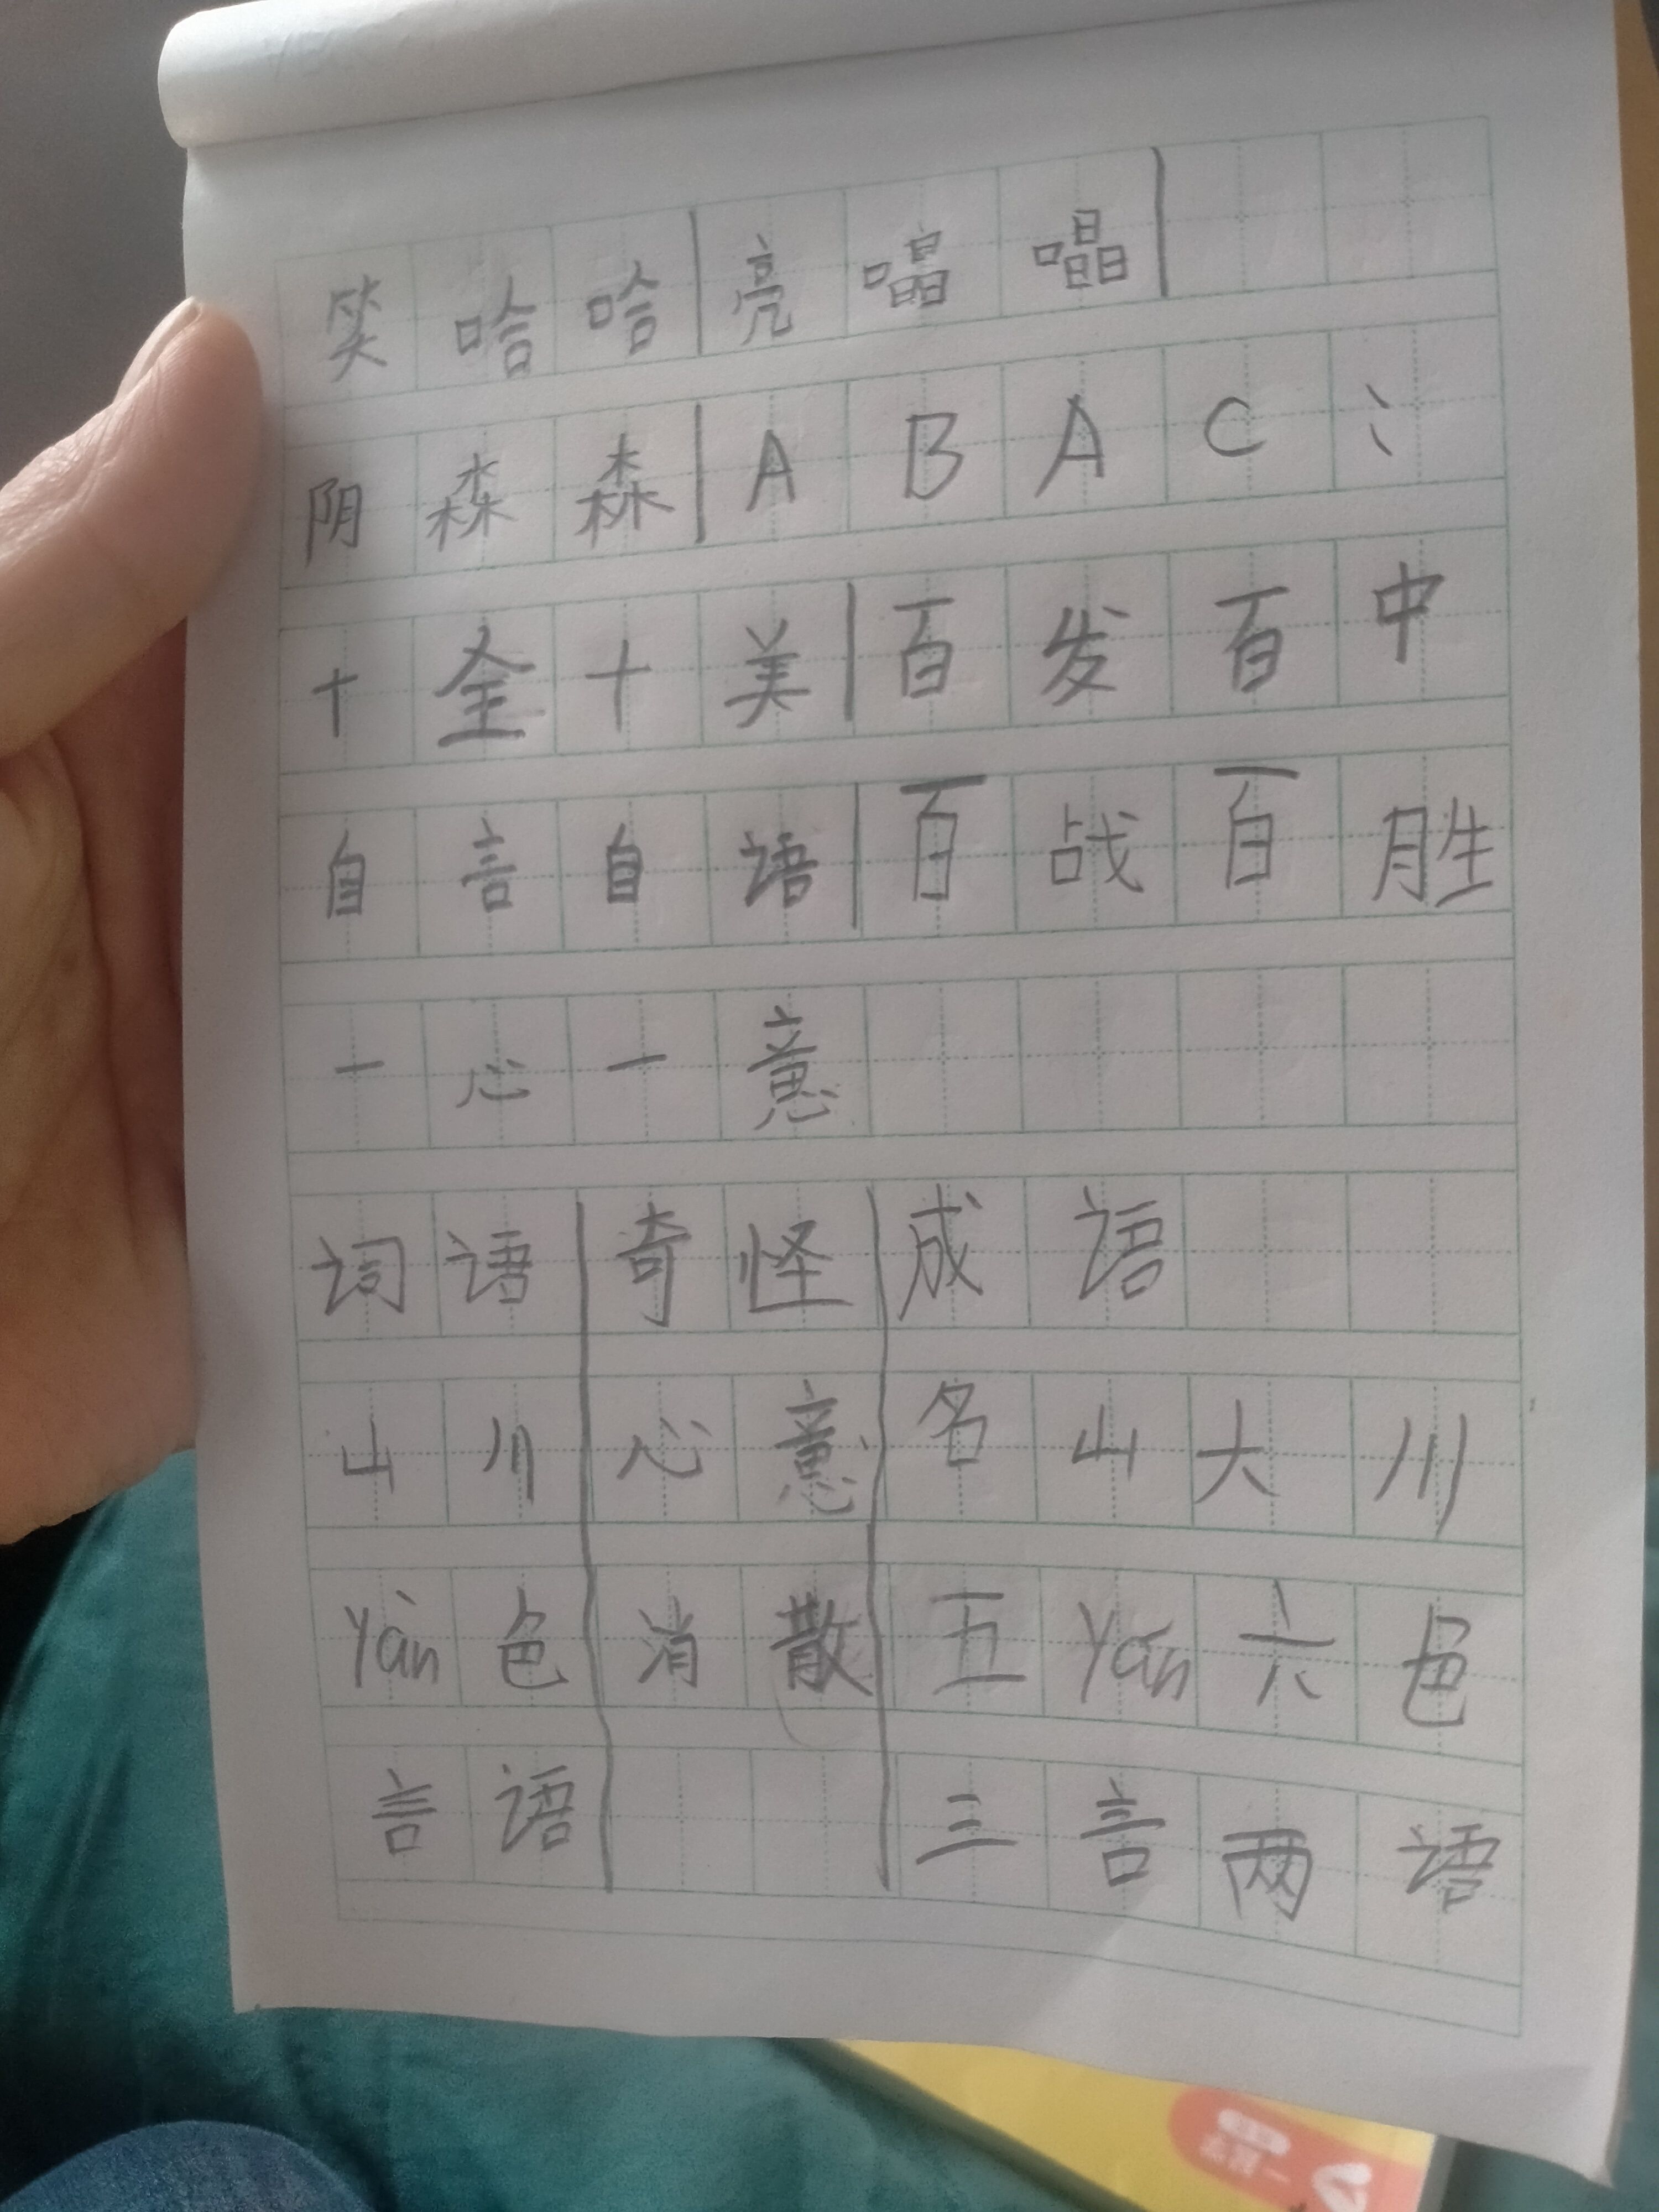 笑哈哈|亮㗊㗊|
阴森森|ABAC:
十全十美|百发百中
自言自语|百战百胜
一心一意
词语|奇怪|成语
山川|心意|名山大川
Yán色|消散|五Yán六色
言语| |三言两语